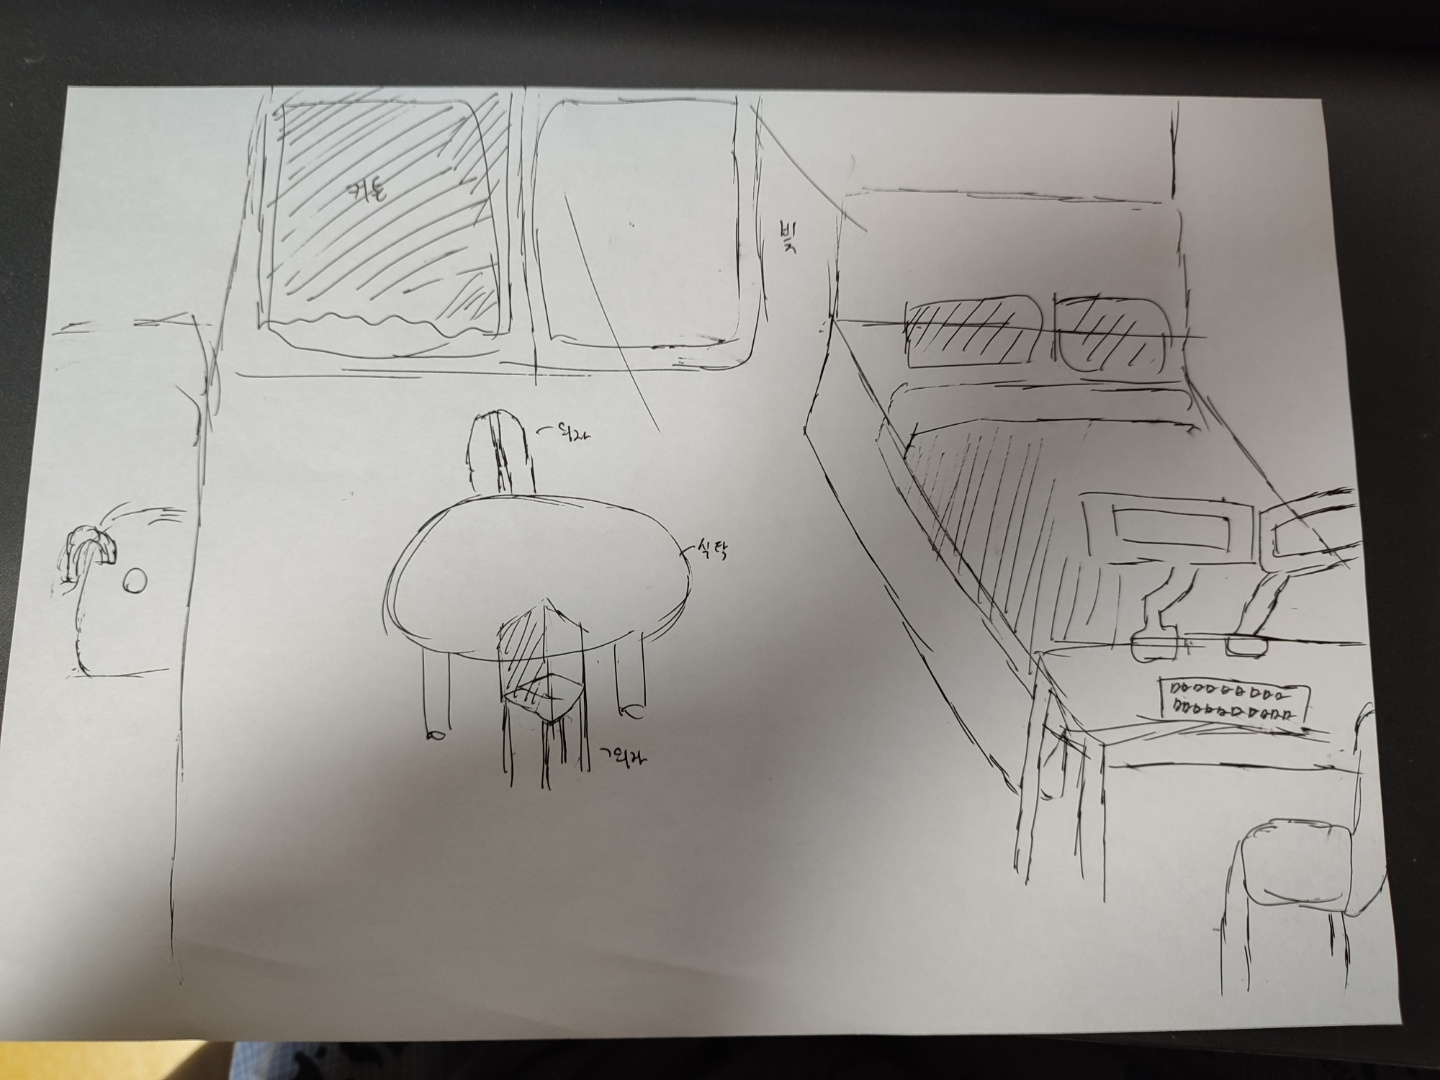 커튼
빛
의자
식탁
의자